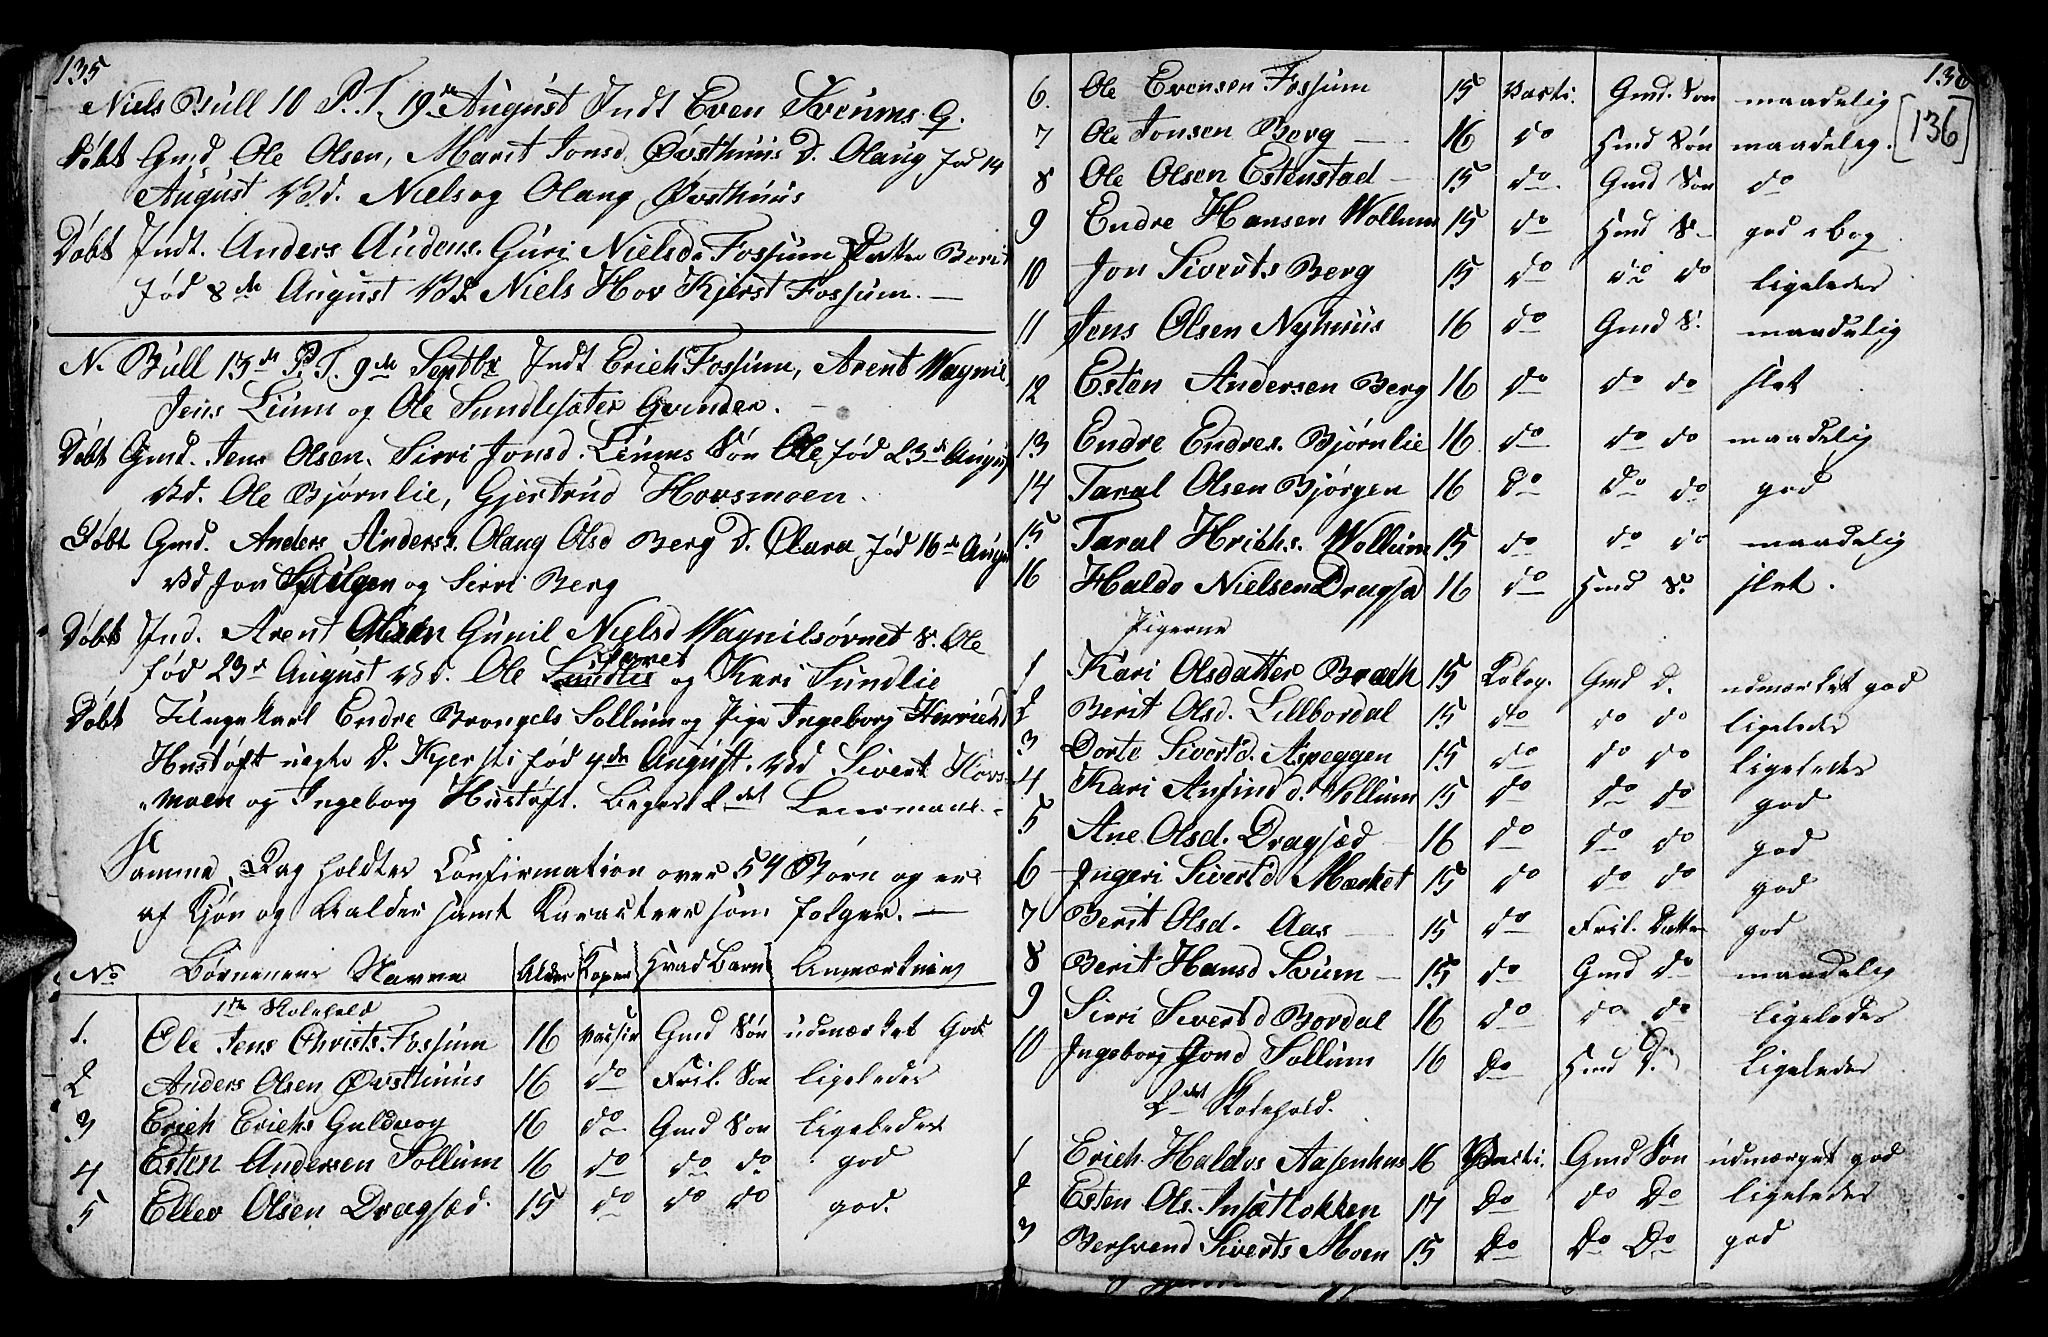 135
Niels Bull 10 P. T. 19de August Indt Even Sveums. G.
Døbt Gmd Ole Olsen, Marit Jonsd. Øvsthuus D. Olaug fød 14
August Vd. Niels og Olaug Øvsthuus
Døbt Indt. Anders Audens. Guri Nielsd. Fossum Datter Berit
fød 8de August Vd. Niels Hov Kjerst Fossum. —
N. Bull 13de P. T. 9de Septbr Indt Erich Fossum, Arent Wagnil,
Jens Lium og Ole Sundlisæter Gvinder.
Døbt Gmd. Jens Olsen. Sirri Jonsd. Liums Søn Ole fød 23de August
Vd. Ole Bjørnlie, Gjertrud Hovsmoen.
Døbt Gmd. Anders Anders. Olaug Olsd Berg D. Olava fød 16de August
Vd Jon og Sirri Berg
Døbt Ind. Arent Olsen Gunil Nielsd Wagnilsøvnet S. Ole
fød 23de August Vd. Ole og Kari Sundlie
Døbt Endre Brongels Sollum og Pige Ingeborg Henrichsd
Hustøft uægte D. Kjersti fød 4de August. Vd Sivert Hovs-
moen og Ingeborg Hustøft. 2det Leiermaal.
Samme Dag holdtes Confirmation over 54 Børn og er
af Kjøn og Alder samt Karacteer som følger. —
No Børnenes Navne Alder Koper Hvad Barn Anmærkning
1ste Kolehold
1. Ole Jens Christs. Fossum 16 Gmd Søn udmærket God
2 Anders Olsen Øvsthuus 16 do Fril. Søn ligeledes
3 Erich Erichs Guldvog 16 do Gmd Søn ligeledes
4 Esten Andersen Sollum 16 do do do god
5 Ellev Olsen Dragsæd. 15 do do do god.
136
[136]
6. Ole Evensen Fossum 15 Gmd. Søn maadelig
7 Ole Jonsen Berg — 16 do Hmd Søn maadelig.
8 Ole Olsen Estenstad — 15 do. Gmd Søn do
9 Endre Hansen Wollum 15 do Hmd S— god i Bog
10 Jon Siverts Berg 15 do do do ligeledes
11 Jens Olsen Nyhuus 16 do Gmd S. maadelig
12 Esten Andersen Berg 16 do do do slet
13 Endre Endres. Bjørnlie 16 do do do maadelig
14 Taral Olsen Bjørgen 16 Do Do do god
15 Taral Hrichs. Wollum 15 do do do maadelig
16 Haldo Nielsen Dragsa 16 do Hmd S. slet.
Pigerne
1 Kari Olsdatter Bræch 15 Gmd D. udmærket god
2 Berit Olsd. Lillbordal 15 do do do ligeledes
3 Dorte Sivertd. Aspeggen 15 do do do ligeledes
4 Kari Anfind d. Sollum 15 do do do god
5 Ane Olsd. Dragsæd 16 do do do god
6 Ingeri Sivertd Mærket 15 do do do god
7 Berit Olsd. Aas — 15 do Fril. Datter god
8 Berit Hansd Svum — 15 do Gmd do maadelig
9 Sirri Sivertd Bordal 16 do do do ligeledes
10 Ingeborg Jond Sollum 16 Do Hmd D. ligeledes
2det Kolehold.
1 Erich Haldos Aasenhus 16 Gmd Søn udmærget god
2 Esten Ols. Insætlokken 17 Do do Do ligeledes
3 Bersvend Siverts Moen 15 Do Do Do god